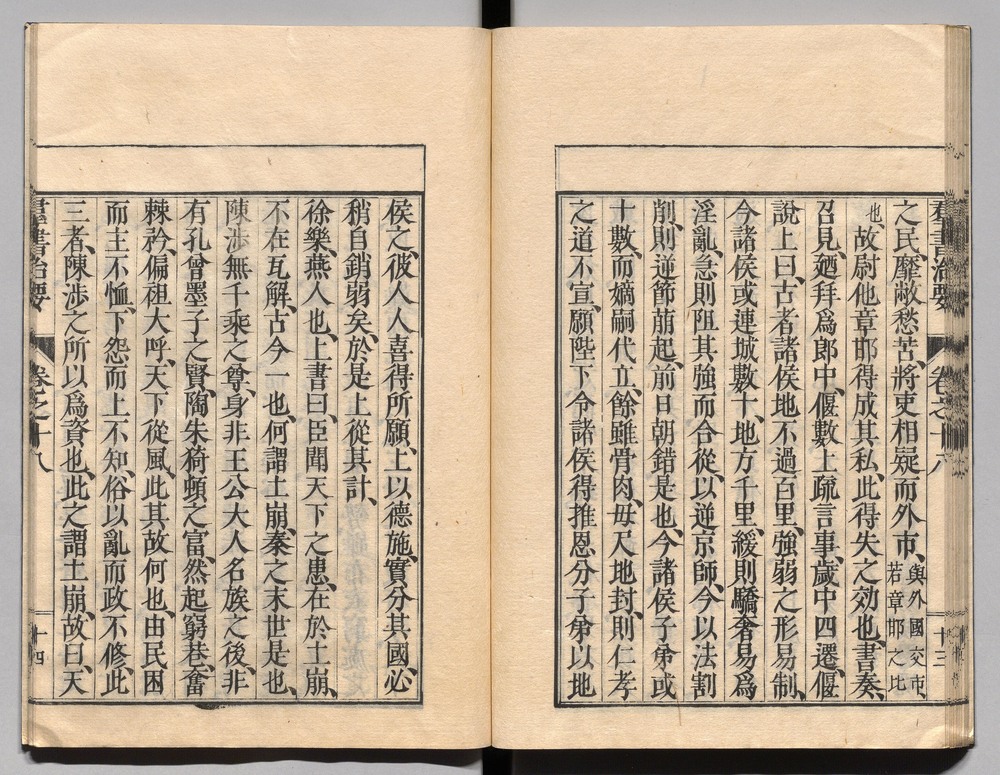 羣書治要 卷之十八 十三
之民靡敝愁苦、將吏相疑而外市、與外國交市、若章邯之比
也、故尉他章邯得成其私、此得失之効也、書奏、
召見、廼拜爲郎中、偃數上疏言事、歲中四遷、偃
說上曰、古者諸侯地不過百里、強弱之形易制、
今諸侯或連城數十、地方千里、緩則驕奢易爲
淫亂、急則阻其強而合從、以逆京師、今以法割
削、則逆節萠起、前日朝錯是也、今諸侯子弟或
十數、而嫡嗣代立、餘雖骨肉、毋尺地封、則仁孝
之道不宣、願陛下令諸侯得推恩分子弟以地
侯之、彼人人喜得所願、上以德施、實分其國、必
稍自銷弱矣、於是上從其計、
徐樂、燕人也、上書曰、臣聞天下之患、在於土崩、
不在瓦解、古今一也、何謂土崩、秦之末世是也、
陳涉無千乘之尊、身非王公大人名族之後、非
有孔曾墨子之賢、陶朱猗頓之富、然起窮巷、奮
棘矜、偏袒大呼、天下從風、此其故何也、由民困
而主不恤、下怨而上不知、俗以亂而政不修、此
三者、陳涉之所以爲資也、此之謂土崩、故曰、天
羣書治要 卷之十八 十四